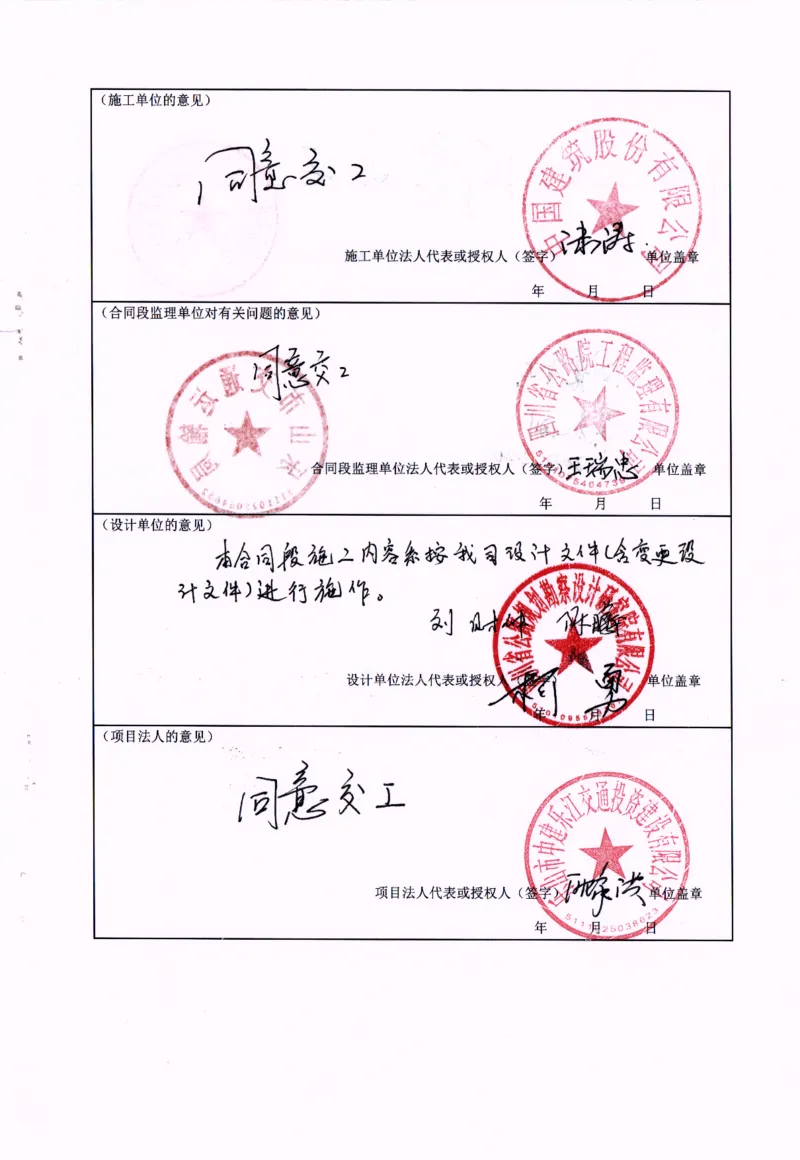 （施工单位的意见）
同意交工
中国建筑股份有限公司
施工单位法人代表或授权人（签字） 单位盖章
年 月 日
（合同段监理单位对有关问题的意见）
同意交工
四川省公路院工程监理有限公司
合同段监理单位法人代表或授权人（签字）王瑞忠 单位盖章
年 月 日
（设计单位的意见）
本合同段施工内容系按我司设计文件（含变更设
计文件）进行施作。
四川省公路规划勘察设计研究院有限公司
设计单位法人代表或授权人 单位盖章
年 月 日
（项目法人的意见）
同意交工
乐山市中建乐江交通投资建设有限公司
项目法人代表或授权人（签字） 单位盖章
5111025038623
年 月 日